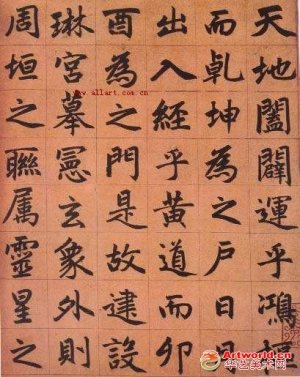 天地闔闢運乎鴻樞
而乾坤為之戶日月
出入經乎黃道而卯
酉為之門是故建設
琳宮摹憲玄象外則
周垣之聯屬靈星之
www.allart.com.cn
Artworld.cn
华艺美术网